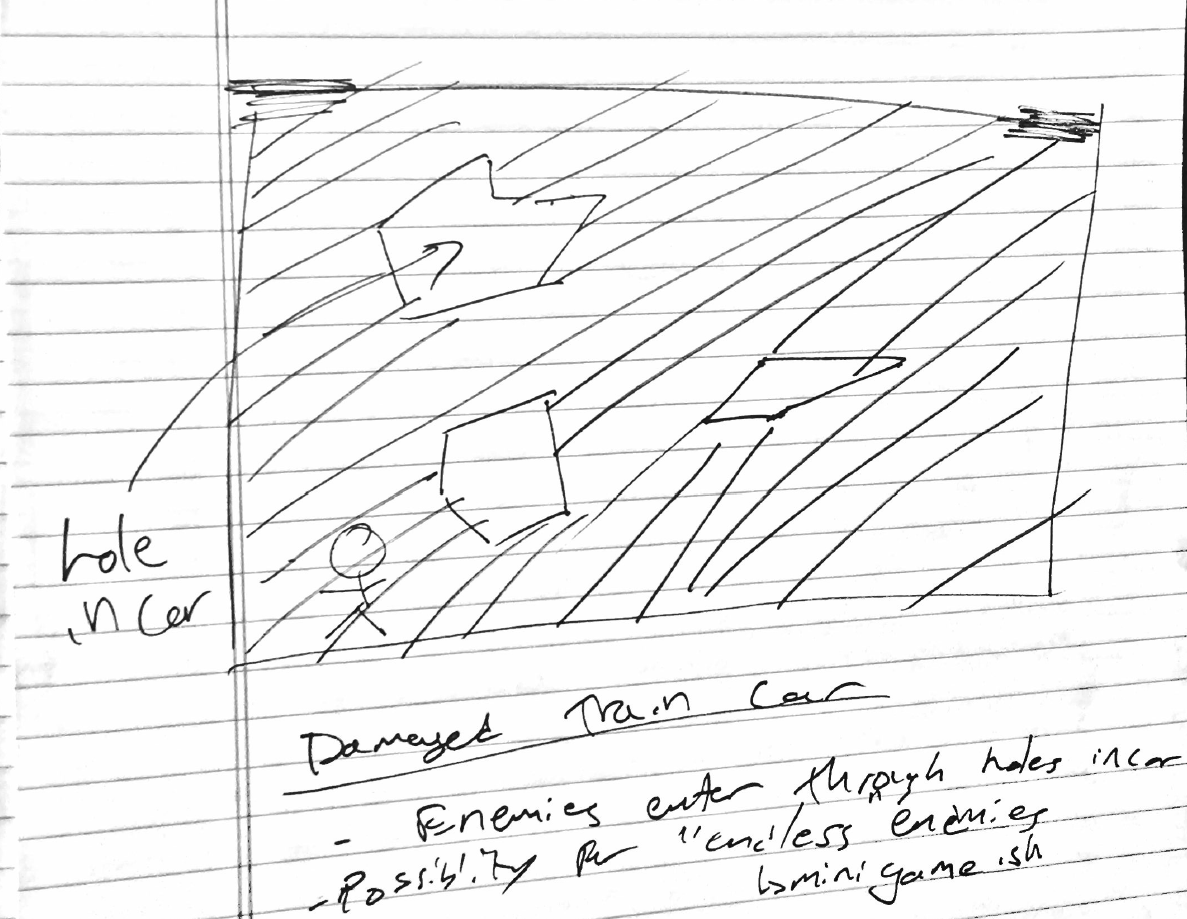 hole
in car
Damaged Train Car
- Enemies enter through holes in car
- Possibility for "endless" enemies
↳ minigame ish